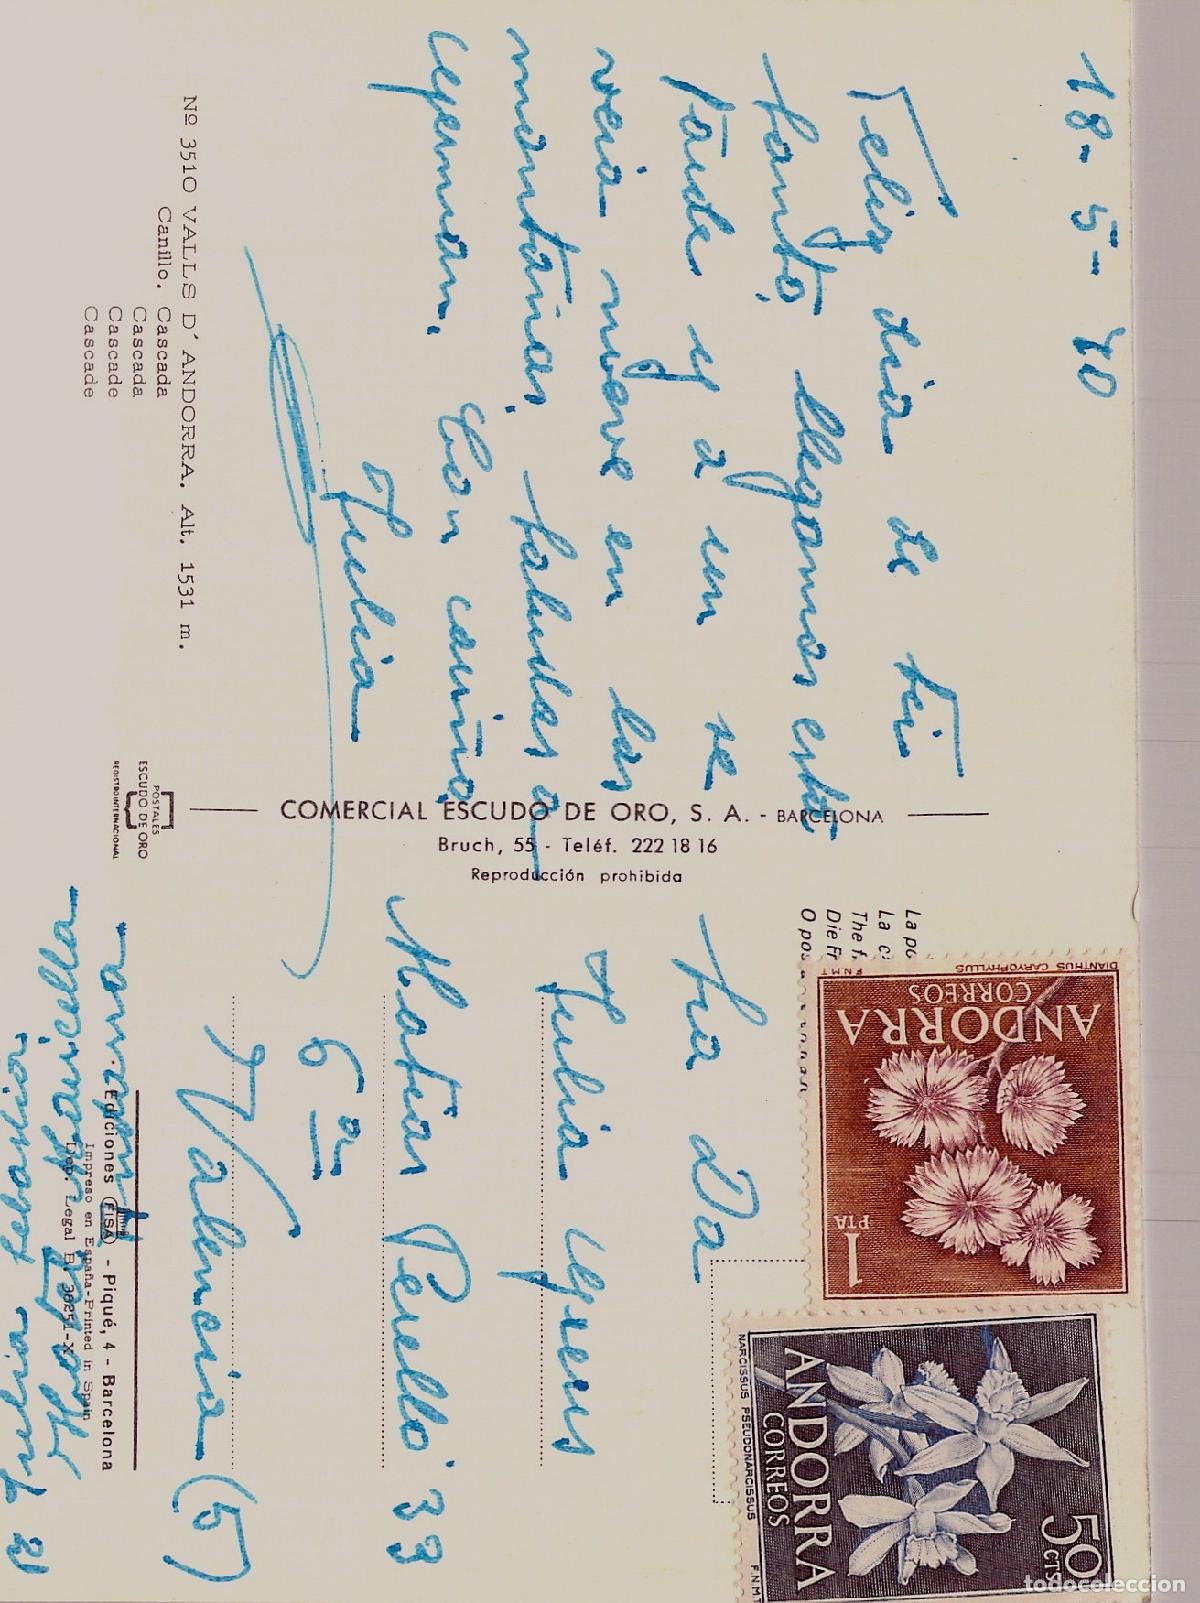 18-5-70
Feliz dia de tu
santo, llegamos esta
tarde y a un se
veia nieve en las
montañas, saludas a
Con cariño
Julia
Nº 3510 VALLS D'ANDORRA. Alt. 1531 m.
Canillo. Cascada
Cascada
Cascade
Cascade
COMERCIAL ESCUDO DE ORO, S. A. - BARCELONA
Bruch, 55 - Teléf. 222 18 16
Reproducción prohibida
POSTALES
ESCUDO DE ORO
REGISTRO INTERNACIONAL
La po
La c
The f
Die Fr
O pos
DIANTHUS CARYOPHYLLUS
CORREOS
ANDORRA
1 PTA
50 CTS
ANDORRA
CORREOS
NARCISSUS PSEUDONARCISSUS
F.N.M.T
Sra Da
Julia
Matias Perelló 33
6ª
Valencia (5)
Ediciones FISA - Piqué, 4 - Barcelona
Impreso en España-Printed in Spain
Dep. Legal B. 38251-X
R Julia Sebastia
Hotel
todocoleccion